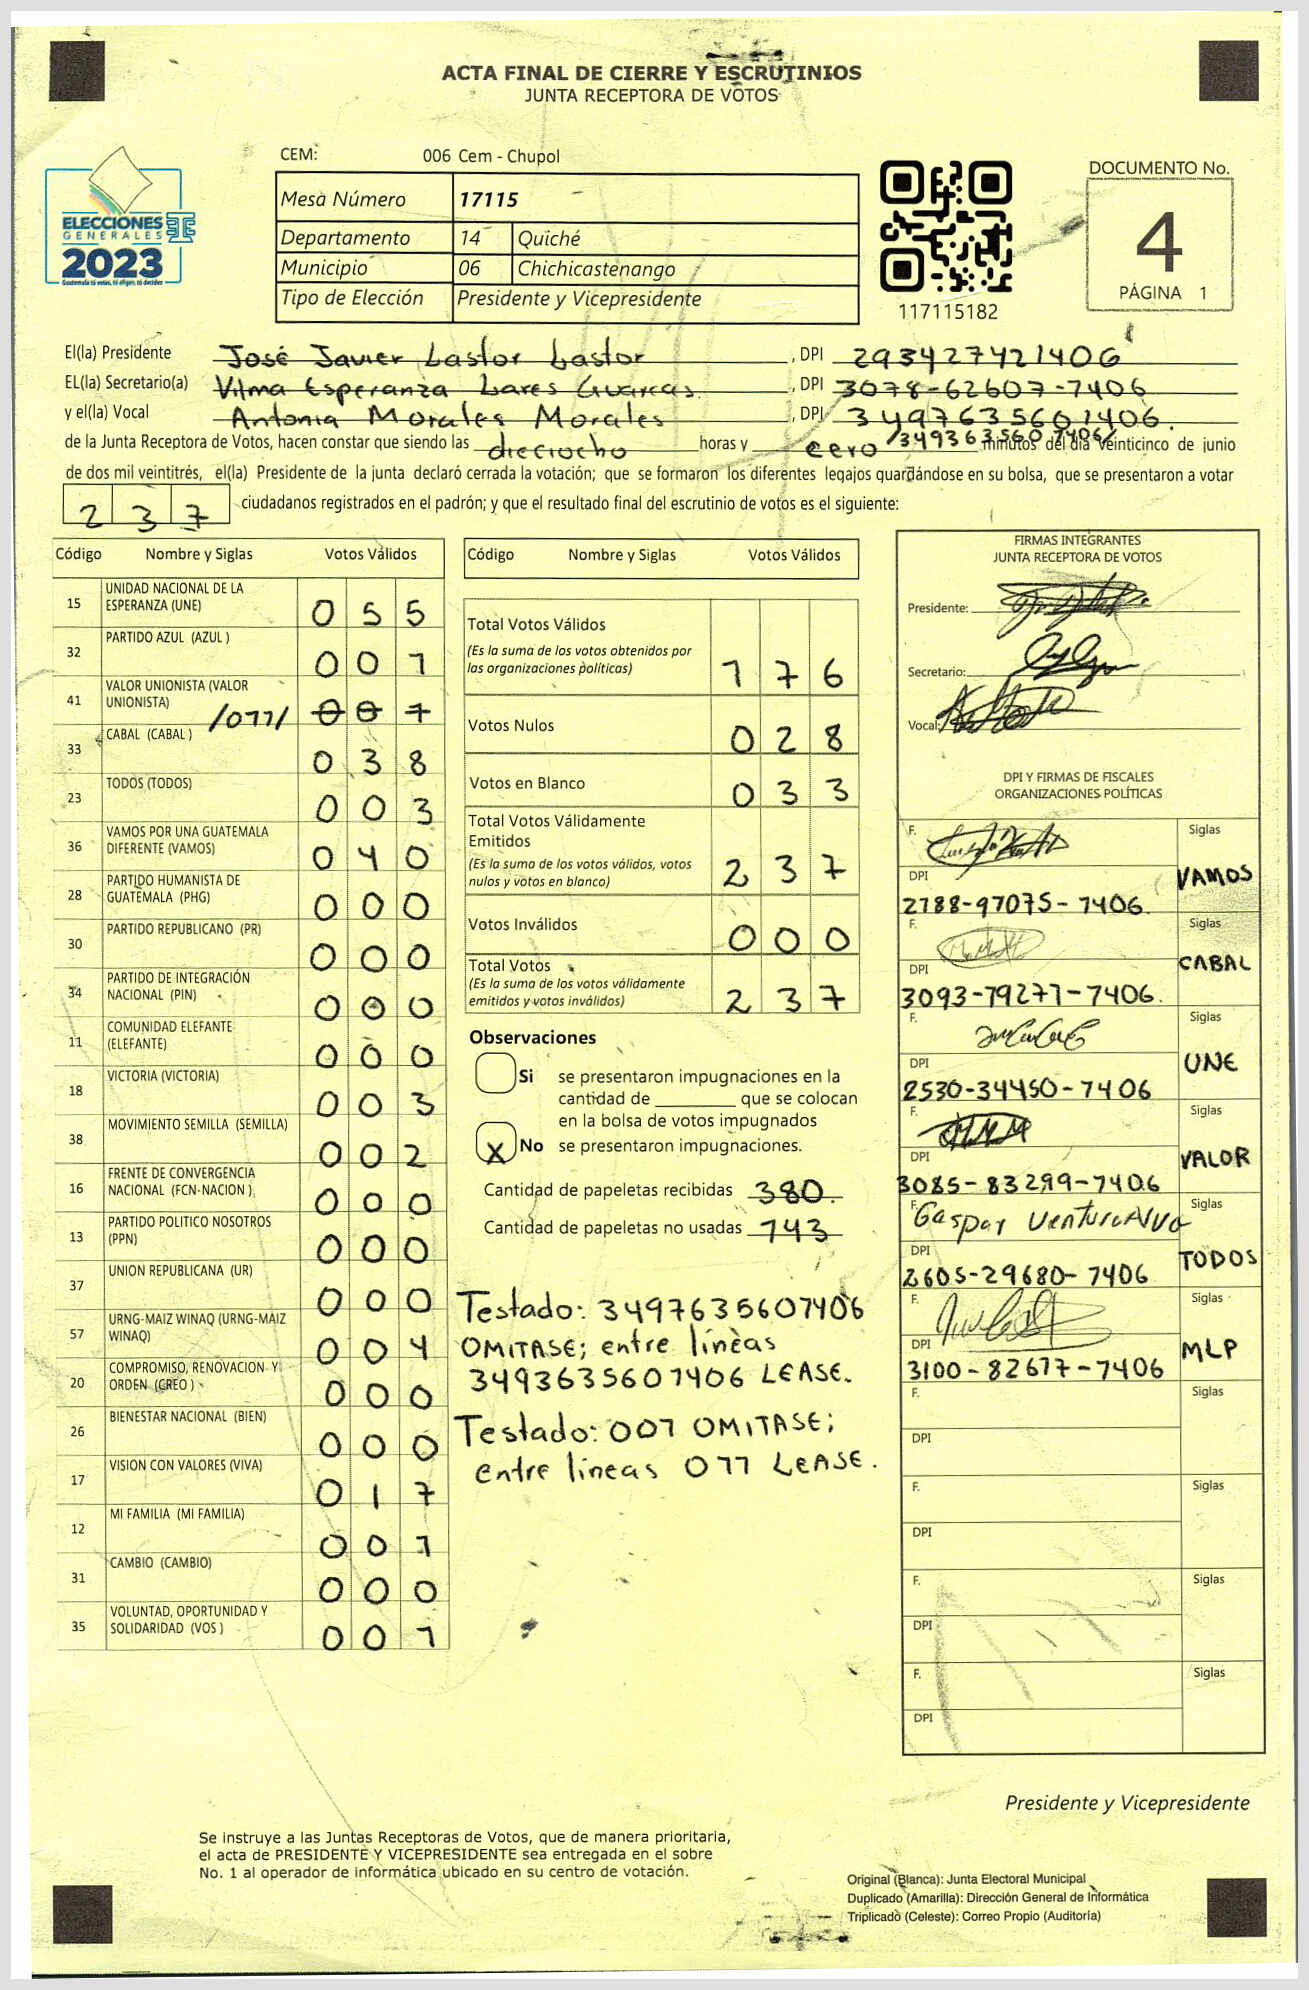 ACTA FINAL DE CIERRE Y ESCRUTINIOS
JUNTA RECEPTORA DE VOTOS
CEM: 006 Cem - Chupol
ELECCIONES
GENERALES
2023
Guatemala tú votas, tú eliges, tú decides
Mesa Número 17115
Departamento 14 Quiché
Municipio 06 Chichicastenango
Tipo de Elección Presidente y Vicepresidente
117115182
DOCUMENTO No.
4
PÁGINA 1
El(la) Presidente José Javier Lastor Lastor, DPI 293427421406
EL(la) Secretario(a) Vilma Esperanza Lares Guarcas, DPI 3078-62607-7406
y el(la) Vocal Antonia Morales Morales, DPI 3497635601406.
/3493635607406/
de la Junta Receptora de Votos, hacen constar que siendo las dieciocho horas y cero minutos del día veinticinco de junio
de dos mil veintitrés, el(la) Presidente de la junta declaró cerrada la votación; que se formaron los diferentes legajos guardándose en su bolsa, que se presentaron a votar
237 ciudadanos registrados en el padrón; y que el resultado final del escrutinio de votos es el siguiente:
Código Nombre y Siglas Votos Válidos
15 UNIDAD NACIONAL DE LA ESPERANZA (UNE) 055
32 PARTIDO AZUL (AZUL ) 001
41 VALOR UNIONISTA (VALOR UNIONISTA) /011/ 007
33 CABAL (CABAL ) 038
23 TODOS (TODOS) 003
36 VAMOS POR UNA GUATEMALA DIFERENTE (VAMOS) 040
28 PARTIDO HUMANISTA DE GUATEMALA (PHG) 000
30 PARTIDO REPUBLICANO (PR) 000
34 PARTIDO DE INTEGRACIÓN NACIONAL (PIN) 000
11 COMUNIDAD ELEFANTE (ELEFANTE) 000
18 VICTORIA (VICTORIA) 003
38 MOVIMIENTO SEMILLA (SEMILLA) 002
16 FRENTE DE CONVERGENCIA NACIONAL (FCN-NACION ) 000
13 PARTIDO POLITICO NOSOTROS (PPN) 000
37 UNION REPUBLICANA (UR) 000
57 URNG-MAIZ WINAQ (URNG-MAIZ WINAQ) 004
20 COMPROMISO, RENOVACION Y ORDEN (CREO ) 000
26 BIENESTAR NACIONAL (BIEN) 000
17 VISION CON VALORES (VIVA) 017
12 MI FAMILIA (MI FAMILIA) 001
31 CAMBIO (CAMBIO) 000
35 VOLUNTAD, OPORTUNIDAD Y SOLIDARIDAD (VOS ) 001
Código Nombre y Siglas Votos Válidos
Total Votos Válidos 176
(Es la suma de los votos obtenidos por
las organizaciones políticas)
Votos Nulos 028
Votos en Blanco 033
Total Votos Válidamente
Emitidos 237
(Es la suma de los votos válidos, votos
nulos y votos en blanco)
Votos Inválidos 000
Total Votos 237
(Es la suma de los votos válidamente
emitidos y votos inválidos)
Observaciones
Si se presentaron impugnaciones en la
cantidad de ________ que se colocan
en la bolsa de votos impugnados
X No se presentaron impugnaciones.
Cantidad de papeletas recibidas 380.
Cantidad de papeletas no usadas 143
Testado: 3497635607406
OMITASE; entre líneas
3493635607406 LEASE.
Testado: 007 OMITASE;
entre líneas 011 LEASE.
FIRMAS INTEGRANTES
JUNTA RECEPTORA DE VOTOS
Presidente:
Secretario:
Vocal:
DPI Y FIRMAS DE FISCALES
ORGANIZACIONES POLÍTICAS
F. Siglas
VAMOS
DPI
2788-97075-1406.
F. Siglas
CABAL
DPI
3093-79271-1406.
F. Siglas
UNE
DPI
2530-34450-1406
F. Siglas
VALOR
DPI
3085-83299-1406
F. Gaspar Ventura Siglas
TODOS
DPI
2605-29680-1406
F. Siglas
MLP
DPI
3100-82677-1406
F. Siglas
DPI
F. Siglas
DPI
F. Siglas
DPI
F. Siglas
DPI
Presidente y Vicepresidente
Se instruye a las Juntas Receptoras de Votos, que de manera prioritaria,
el acta de PRESIDENTE Y VICEPRESIDENTE sea entregada en el sobre
No. 1 al operador de informática ubicado en su centro de votación.
Original (Blanca): Junta Electoral Municipal
Duplicado (Amarilla): Dirección General de Informática
Triplicado (Celeste): Correo Propio (Auditoría)